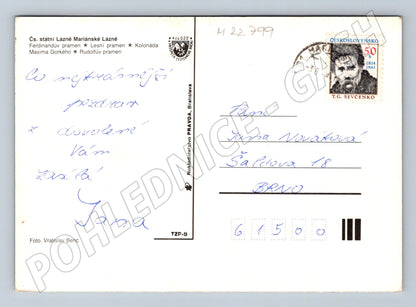 Čs. státní Lázně Mariánské Lázně
Ferdinandův pramen ★ Lesní pramen ★ Kolonáda
Maxima Gorkého ★ Rudolfův pramen
Co nejkrásnější
pozdrav
z dovolené
Vám
zasílá
Jana
Foto: Vratislav
TZP-9
Nakladatelství PRAVDA, Bratislava
M 22 799
ČESKOSLOVENSKO
50
1814
1861
T.G. ŠEVČENKO
Paní
Jana Novotová
Šaldova 18
BRNO
61500
POHLEDNICE-CASH